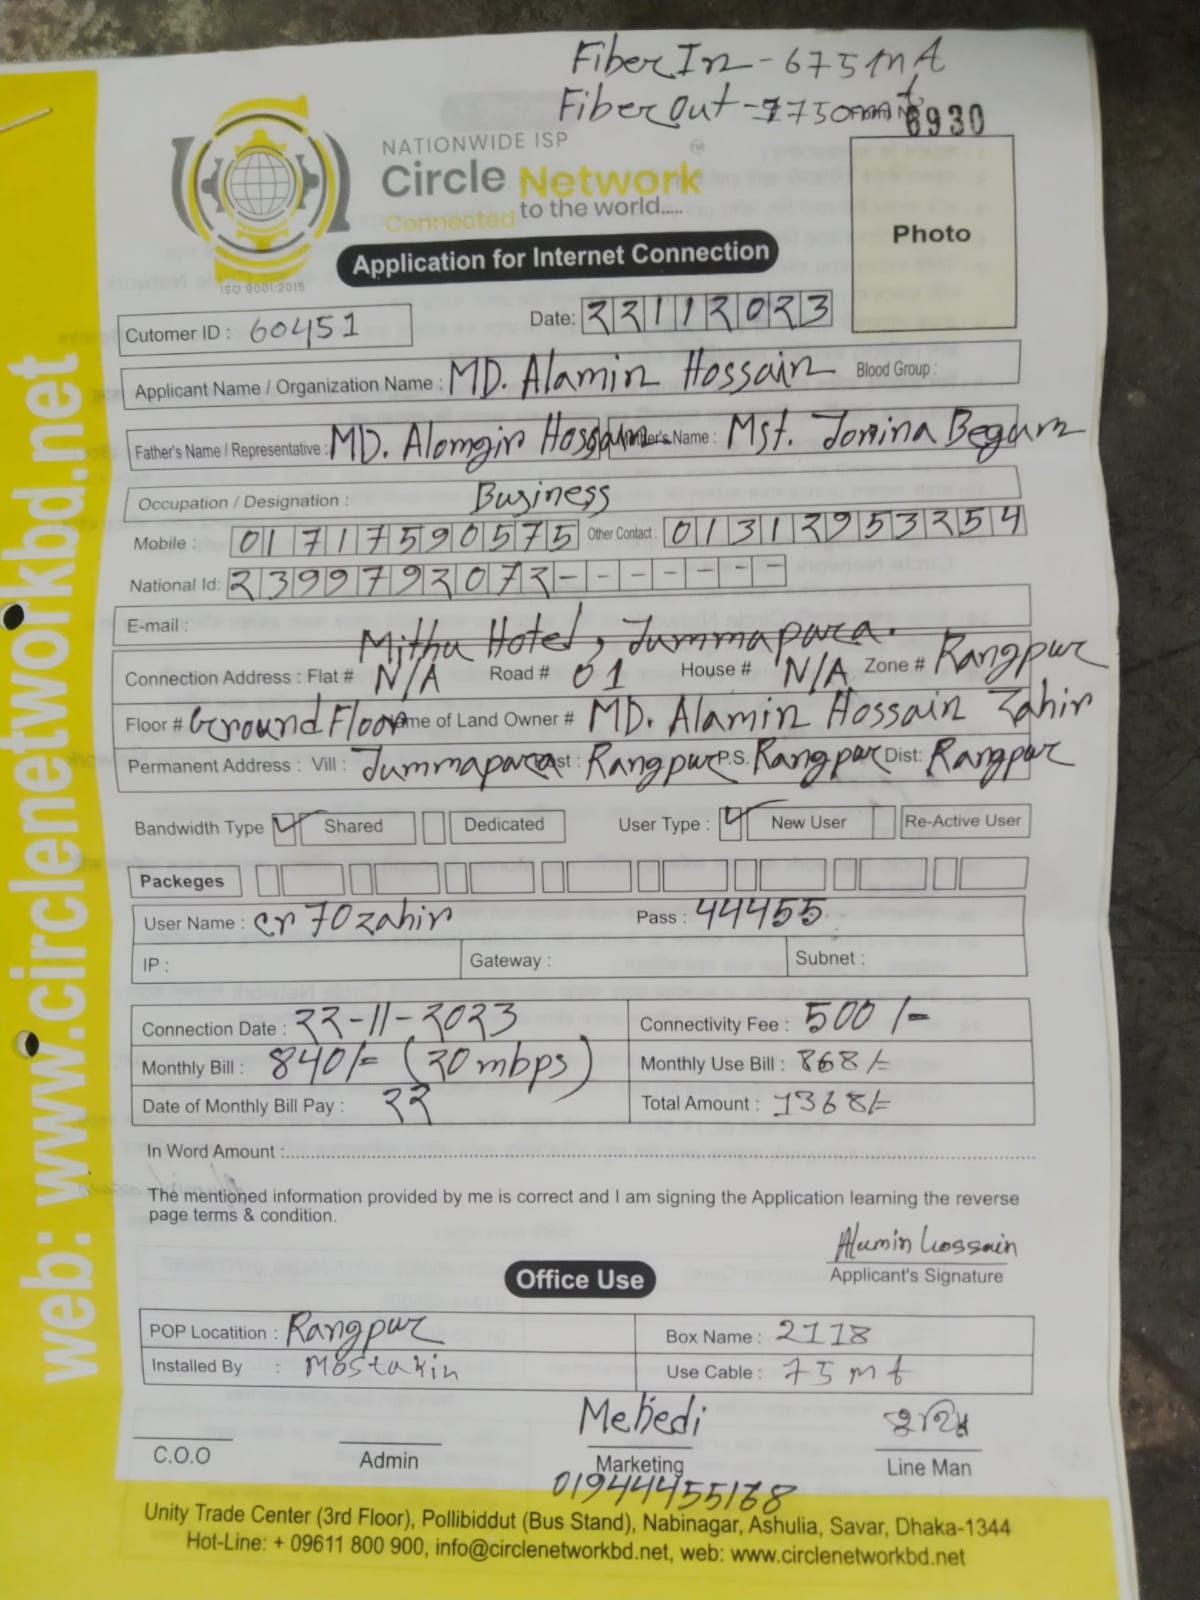 Fiber In - 675 mt
Fiber Out - 7750
6930
NATIONWIDE ISP
Circle Network TM
Connected to the world.....
ISO 9001:2015
Application for Internet Connection
Photo
Cutomer ID : 60451
Date: 22112023
Applicant Name / Organization Name : MD. Alamin Hossain Blood Group :
Father's Name / Representative : MD. Alomgir Hossain Mother's Name : Mst. Jomina Begum
Occupation / Designation : Business
Mobile : 01717590575 Other Contact : 01312953254
National Id: 2399792072 - - - - - - -
E-mail :
Mithu Hotel, Jummapara.
Connection Address : Flat # N/A Road # 01 House # N/A Zone # Rangpur
Floor # Ground Floor Name of Land Owner # MD. Alamin Hossain Zahir
Permanent Address : Vill : Jummapara Post : Rangpur P.S. Rangpur Dist: Rangpur
Bandwidth Type ✓ Shared Dedicated User Type : ✓ New User Re-Active User
Packeges
User Name : cr70zahir Pass : 44455
IP : Gateway : Subnet :
Connection Date : 22-11-2023 Connectivity Fee : 500 /=
Monthly Bill : 840/= (20 mbps) Monthly Use Bill : 868/=
Date of Monthly Bill Pay : 22 Total Amount : 1368/=
In Word Amount :
The mentioned information provided by me is correct and I am signing the Application learning the reverse
page terms & condition.
Alamin Hossain
Applicant's Signature
Office Use
POP Locatition : Rangpur Box Name : 2118
Installed By : Mostakin Use Cable : 75 mt
Mehedi
C.O.O Admin Marketing Line Man
019444455168
Unity Trade Center (3rd Floor), Pollibiddut (Bus Stand), Nabinagar, Ashulia, Savar, Dhaka-1344
Hot-Line: + 09611 800 900, info@circlenetworkbd.net, web: www.circlenetworkbd.net
web: www.circlenetworkbd.net